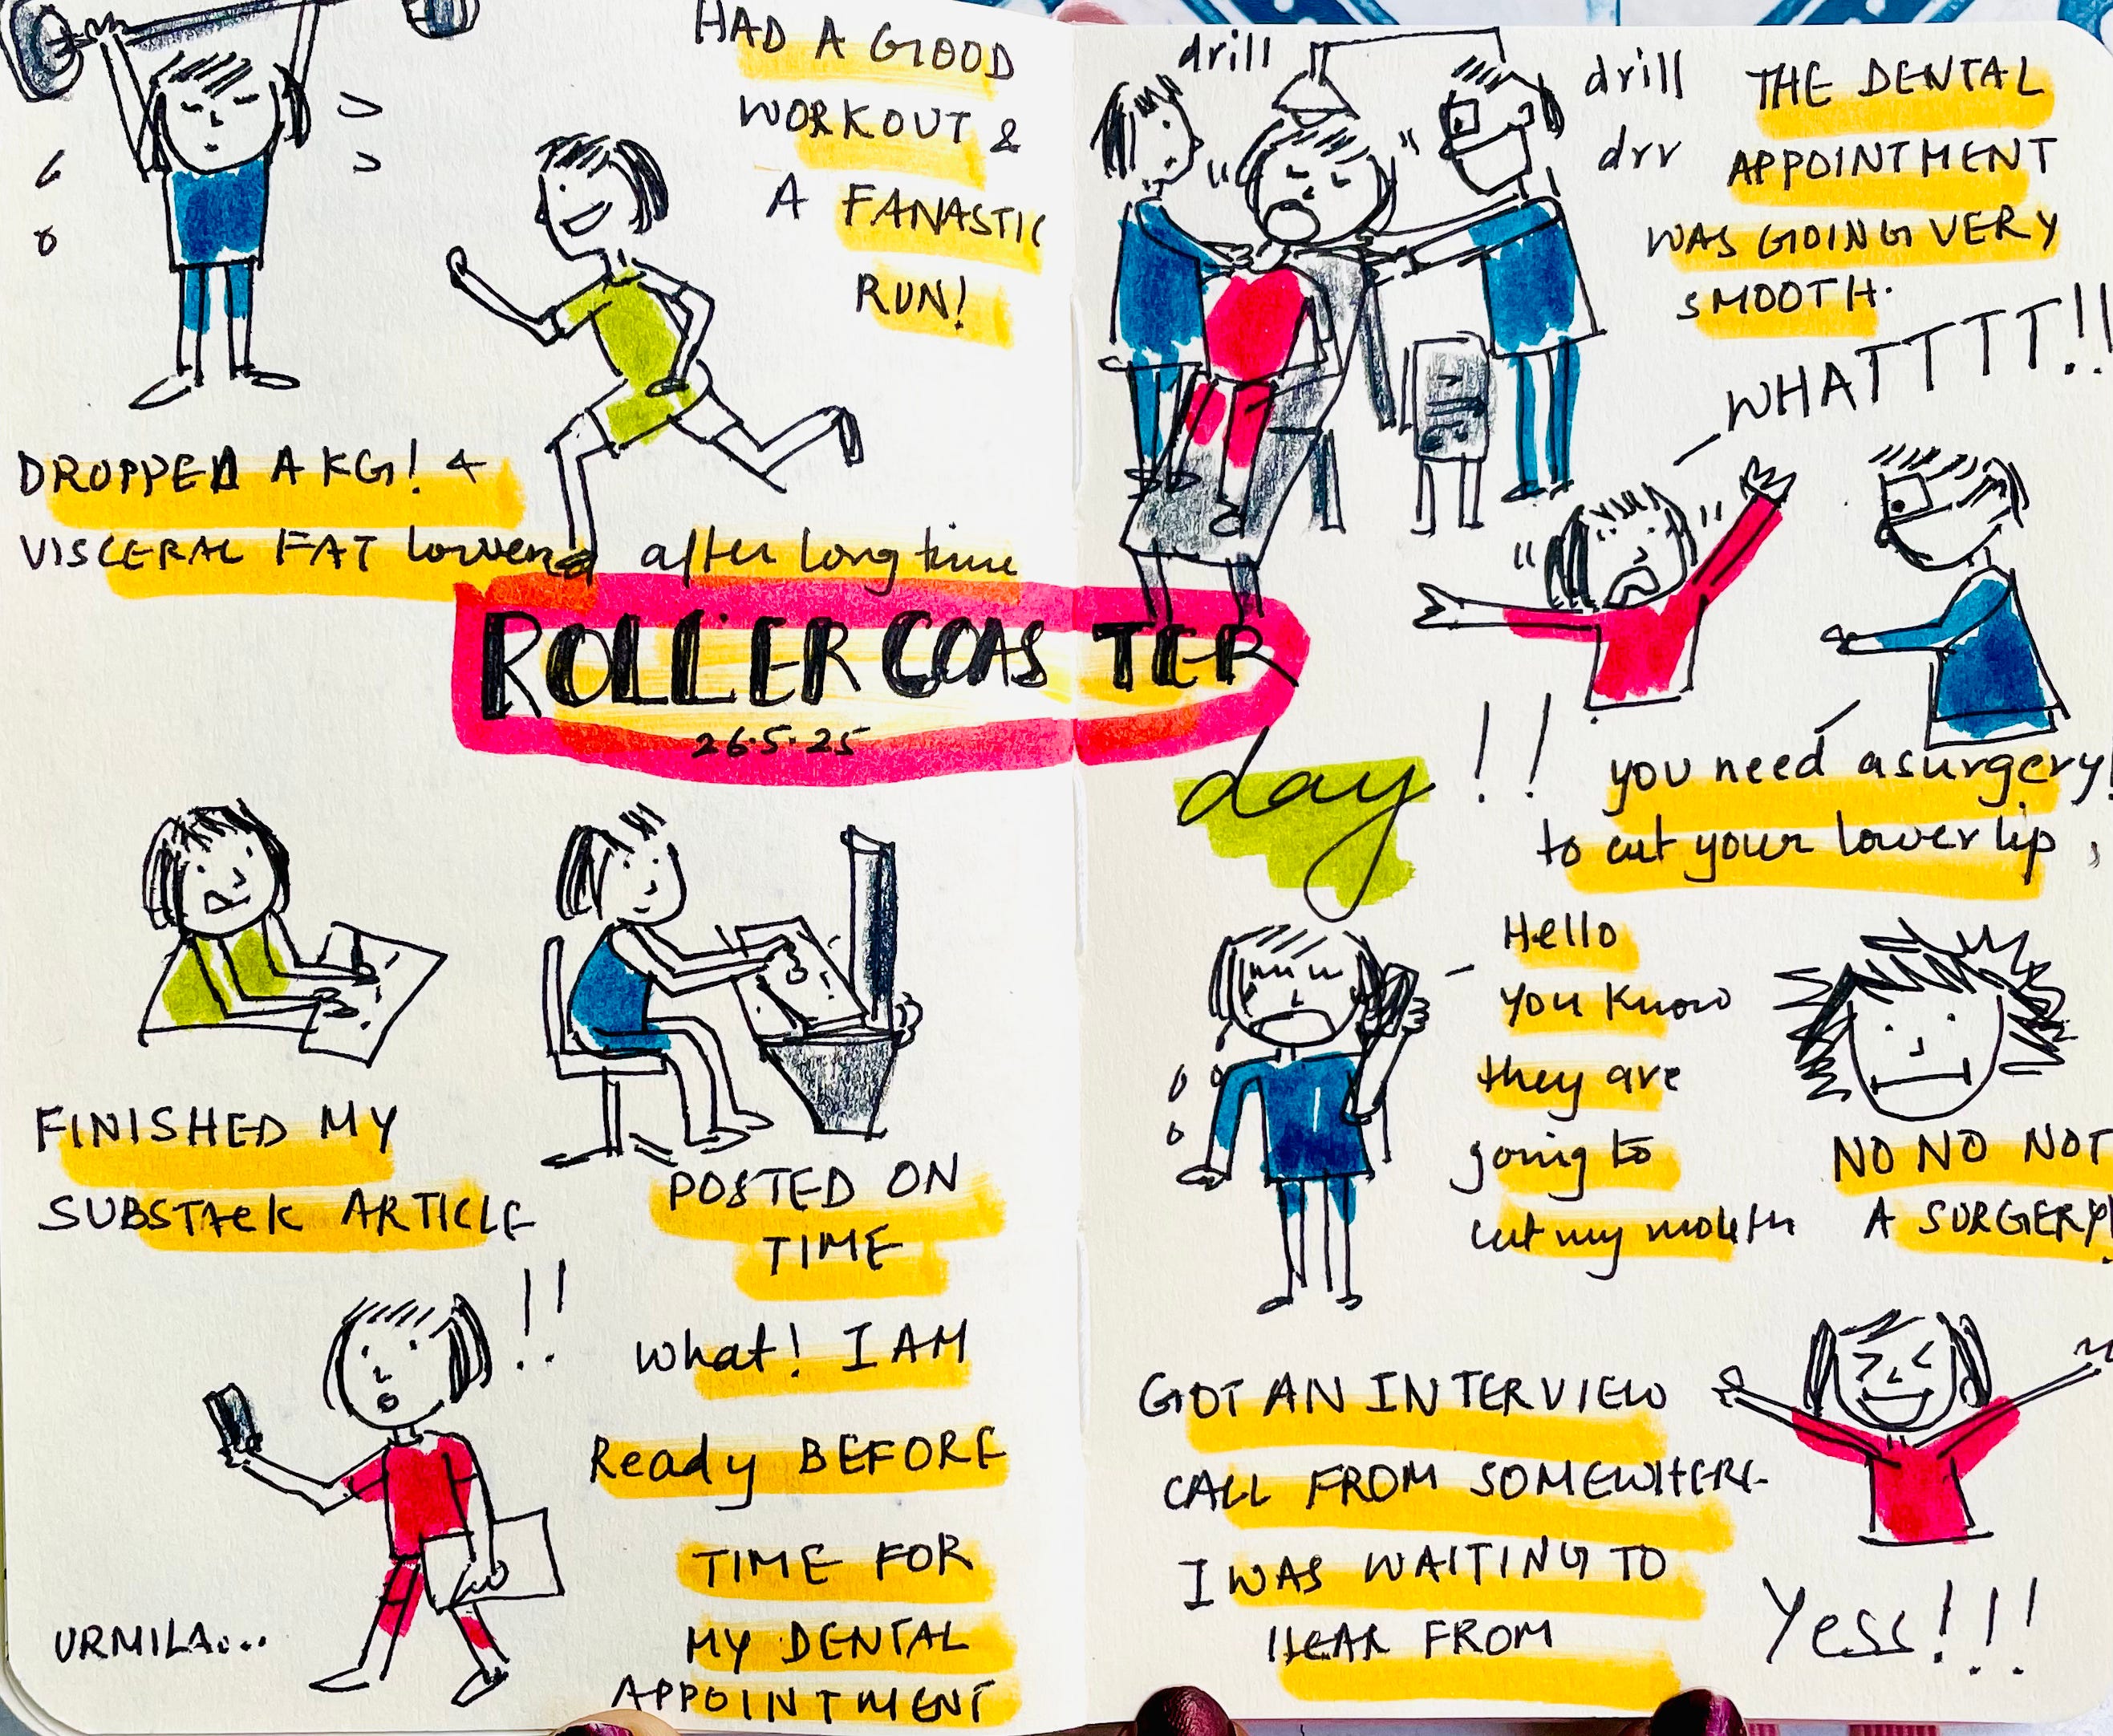 HAD A GOOD
WORKOUT &
A FANASTIC
RUN!
DROPPED A KG! &
VISCERAL FAT lowered after long time
ROLLER COASTER
26.5.25
day !!
FINISHED MY
SUBSTACK ARTICLE
POSTED ON
TIME
!!
What! I AM
Ready BEFORE
TIME FOR
MY DENTAL
APPOINTMENT
URMILA...
drill
drill
drr
THE DENTAL
APPOINTMENT
WAS GOING VERY
SMOOTH.
WHATTTTT!!
you need a surgery!
to cut your lower lip,
Hello
You Know
they are
going to
cut my mouth
NO NO NOT
A SURGERY!
GOT AN INTERVIEW
CALL FROM SOMEWHERE
I WAS WAITING TO
HEAR FROM
Yess!!!